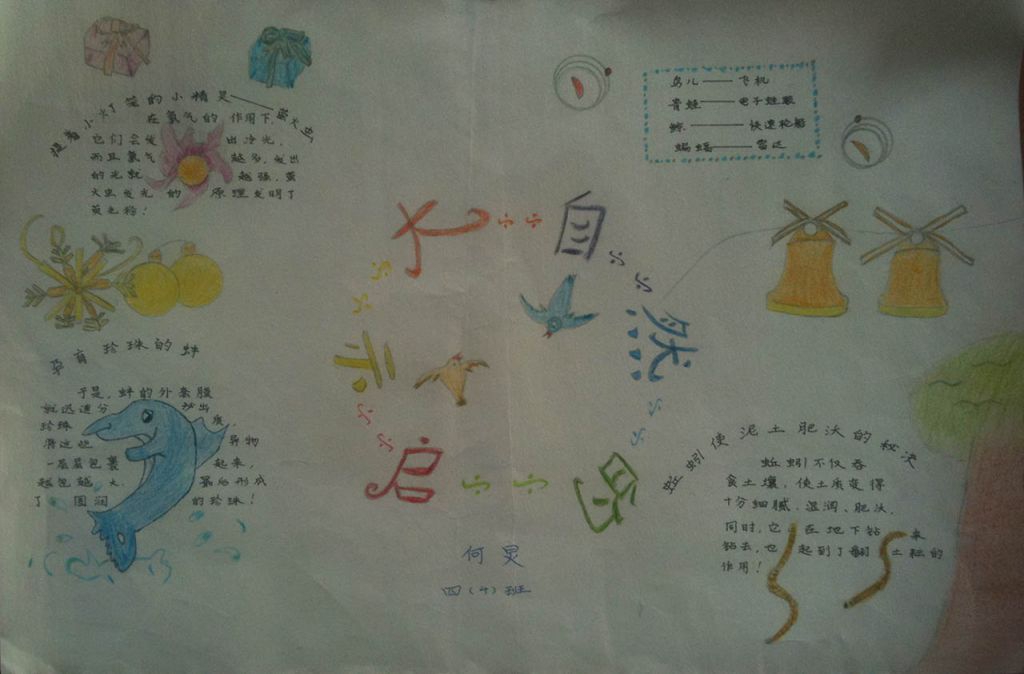 提着小灯笼的小精灵——萤火虫
在氧气的 作用下,
它们会发 出冷光,
而且氧气 越多,发出
的光就 越强,萤
火虫发光 的 原理发明了
荧光棒!
鸟儿——飞机
青蛙——电子蛙眼
鲸——快速轮船
蝙蝠——雷达
大自然的启示
孕育珍珠的蚌
于是,蚌的外套膜
就迅速分 泌出
珍珠 质,
将这些 异物
一层层包裹 起来,
越包越大, 最后形成
了 圆润 的珍珠!
蚯蚓使泥土肥沃的秘决
蚯蚓不仅吞
食土壤,使土质变得
十分细腻、湿润、肥沃,
同时,它 在地下钻 来
钻去,也 起到了翻 土粒的
作用!
何炅
四(4)班